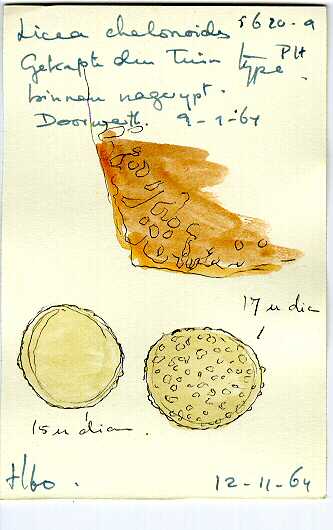 Licea chelonoides 5620-9
Gekapte den Tuin type PH
binnen
Doorwerth. 9-1-64
17 u dia
15 u diam.
12-11-64